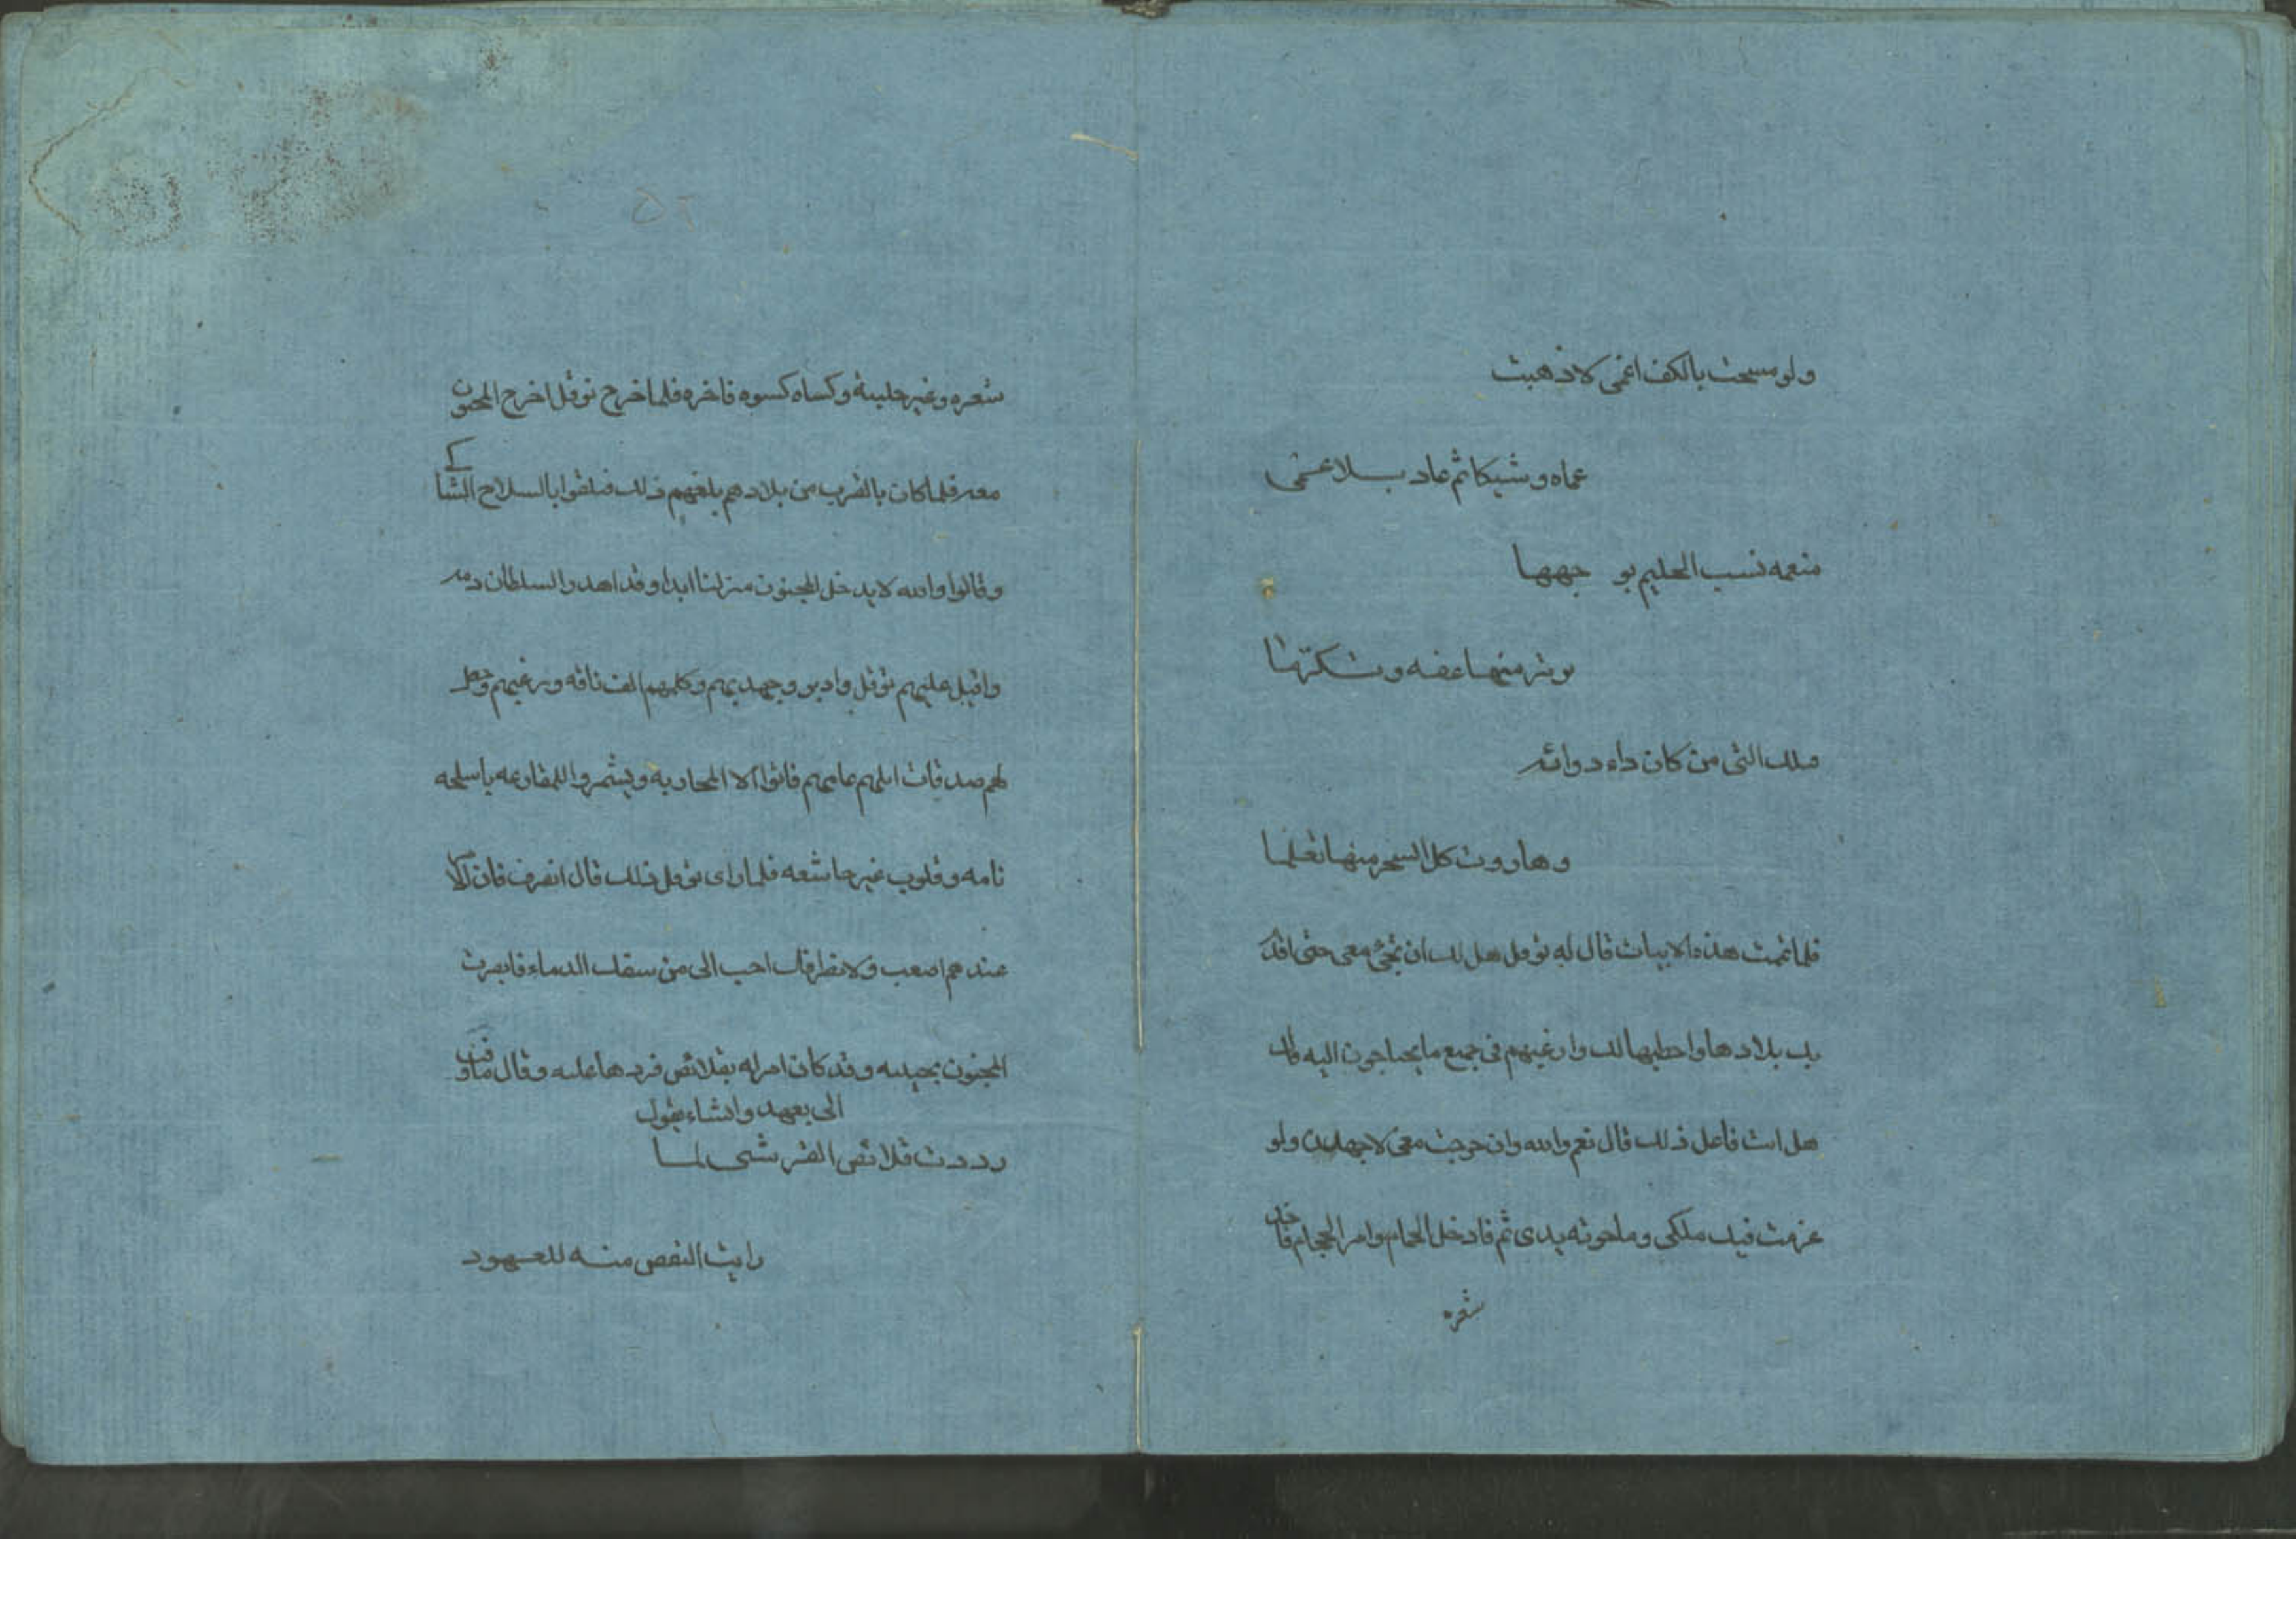 ولو مسحت بالكف اعمى لاذهبت
عماه وشيكا ثم عاد بلا عمى
منعمه تسب الحليم بوجهها
منها عفه وتكرما
التى من كان داء دوائه
وهاروت كل السحر منها تعلما
فلما تمت هذه الابيات قال له نوفل هل لك ان تجئ معى حتى اقد
بك بلادها واخطبها لك وارغبهم فى جميع ما يحتاجون اليه قال
هل انت فاعل ذلك قال نعم والله وان خرجت معى لاجهدن ولو
عزمت فيك ملكى وما حوته يدى ثم فادخل الحمام وامر الحجام فاخذ
شعره
٥٢
شعره وغير حليته وكساه كسوه فاخره فلما خرج نوفل اخرج المجنون
معه فلما كان بالقرب من بلادهم بلغهم ذلك فتلقوا بالسلاح الشاكى
وقالوا والله لا يدخل المجنون منزلنا ابدا وقد اهدر السلطان دمه
واقبل عليهم نوفل وادبر وجهد بهم وكلمهم الف ناقه ورغبهم وجعل
لهم صدقات ابلهم عامهم فاتوا الا المحاربه ويشمروا للمقارعه باسلحه
تامه وقلوب غير خاشعه فلما راى نوفل ذلك قال انصرف فان الا
عندهم اصعب ولانصرافك احب الى من سفك الدماء فابصرت
المجنون بحيلته وقد كان امر له بقلائص فردها عليه وقال ما وفيت
الى بعهد وانشاء يقول
رددت قلائص القرشى لما
رايت النقص منه للعهود